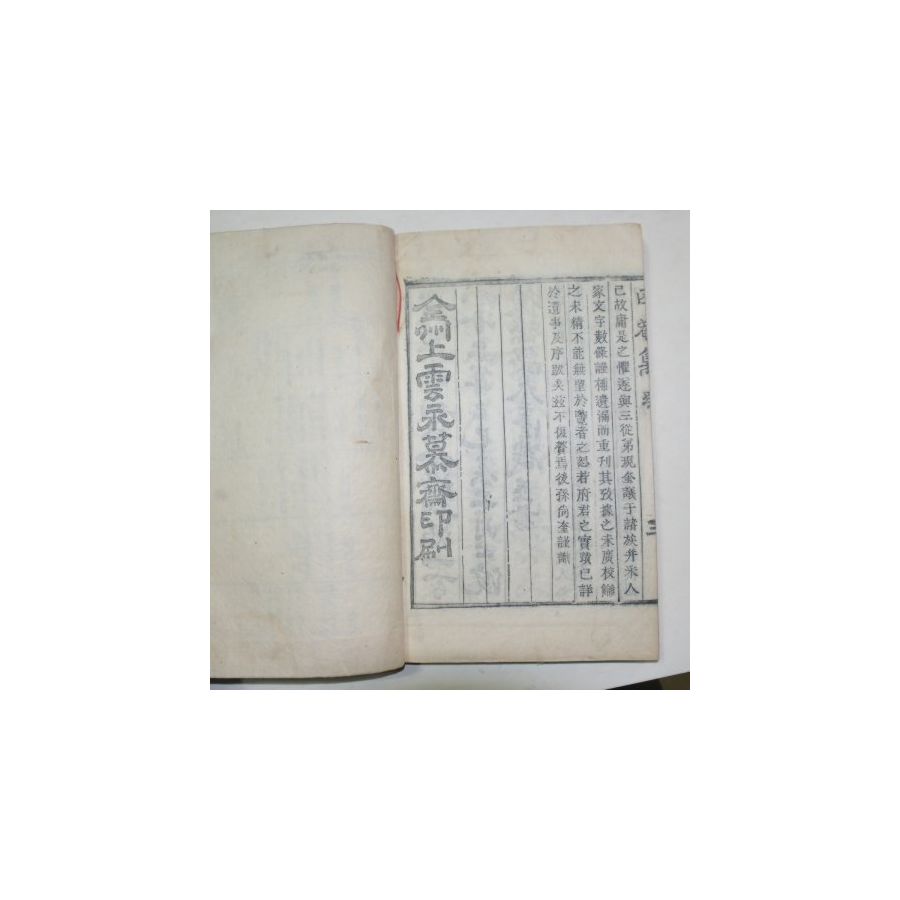 集 三
已故庸是之懼遂與三從弟現奎議于諸族幷采人
家文字數條證補遺漏而重刊其攷據之未廣校讐
之未精不能無望於覽者之恕若府君之實蹟已詳
於遺事及序跋矣玆不復贅焉後孫尙奎謹識
上雲永慕齋印刷